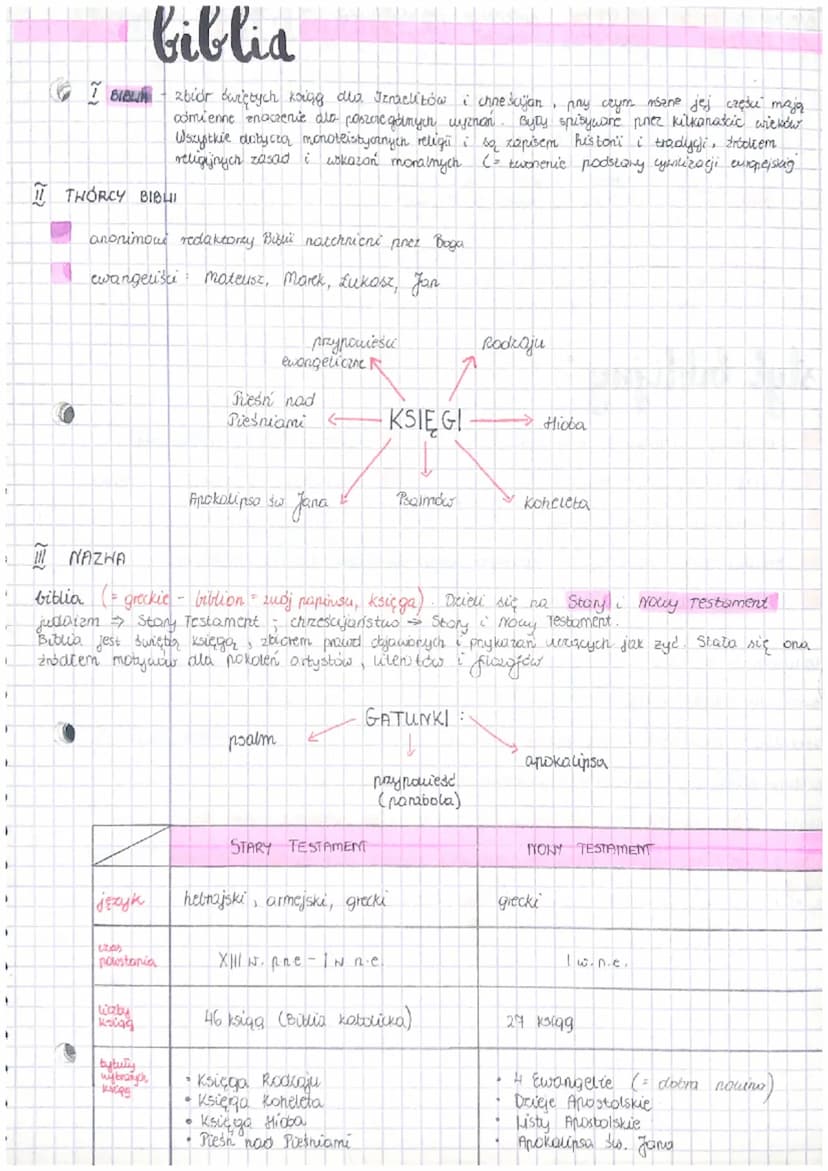 biblia
I BIBLIA - zbiór świętych ksiąg dla Izraelitów i chrześcijan, przy czym różne jej części mają
odmienne znaczenie dla poszczególnych wyznań. Były spisywane przez kilkanaście wieków
Wszystkie dotyczą monoteistycznych religii i są zapisem historii i tradycji, źródłem
religijnych zasad i wskazań moralnych (= tworzenie podstawy cywilizacji europejskiej
II TWÓRCY BIBLII
anonimowi redaktorzy Biblii natchnieni przez Boga
ewangeliści: Mateusz, Marek, Łukasz, Jan
przypowieści
ewangeliczne
Rodzaju
Pieśń nad
Pieśniami
KSIĘGI
Hioba
Apokalipsa św Jana
Psalmów
Koheleta
III NAZWA
biblia (= greckie - biblion = zwój papirusu, księga). Dzieli się na Stary i Nowy Testament
judaizm => Stary Testament ; chrześcijaństwo => Stary i Nowy Testament.
Biblia jest świętą księgą, zbiorem prawd objawionych i przykazań uczących jak żyć. Stała się ona
źródłem motywów dla pokoleń artystów, literatów i filozofów
GATUNKI :
psalm
apokalipsa
przypowieść
(parabola)
STARY TESTAMENT NOWY TESTAMENT
język hebrajski, armejski, grecki grecki
czas
powstania XIII w. p.n.e - I w n.e. I w.n.e.
liczby
ksiąg 46 ksiąg (Biblia katolicka) 27 ksiąg
tytuły
wybranych
ksiąg
• Księga Rodzaju • 4 Ewangelie (= dobra nowina)
• Księga Koheleta • Dzieje Apostolskie
• Księga Hioba • Listy Apostolskie
• Pieśń nad Pieśniami • Apokalipsa św. Jana